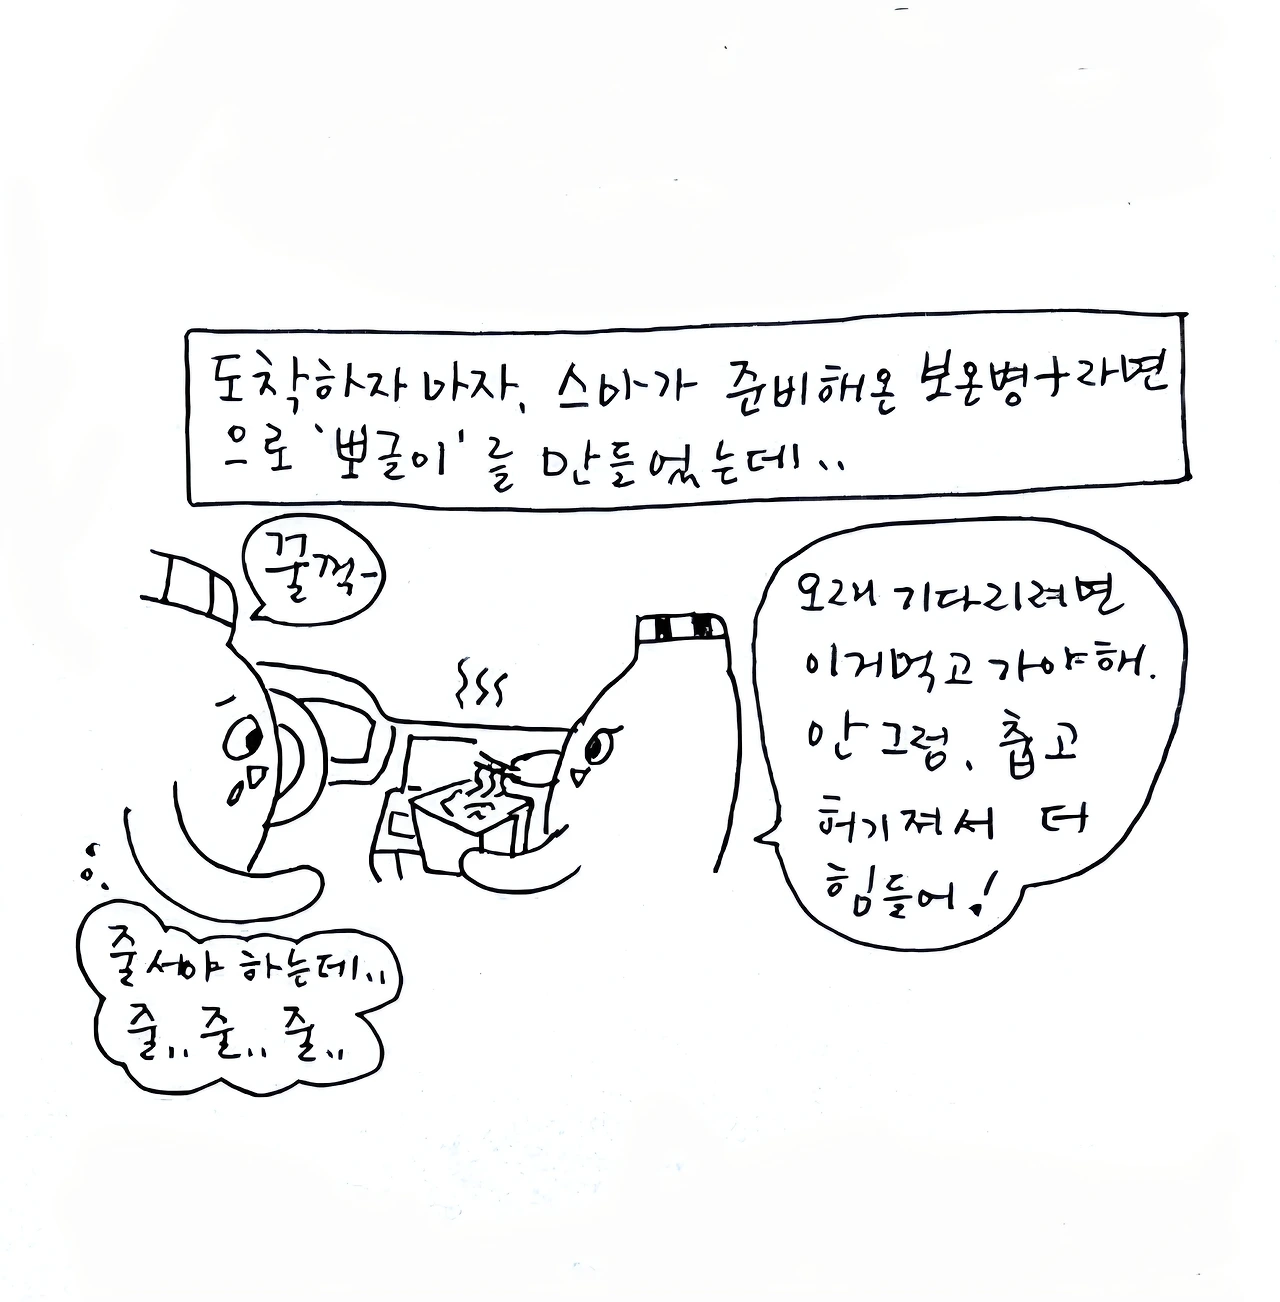 도착하자마자, 스마가 준비해온 보온병+라면
으로 '뽀글이'를 만들었는데..
꿀꺽-
오래 기다리려면
이거먹고 가야해.
안그럼, 춥고
허기져서 더
힘들어!
줄서야 하는데..
줄.. 줄.. 줄..